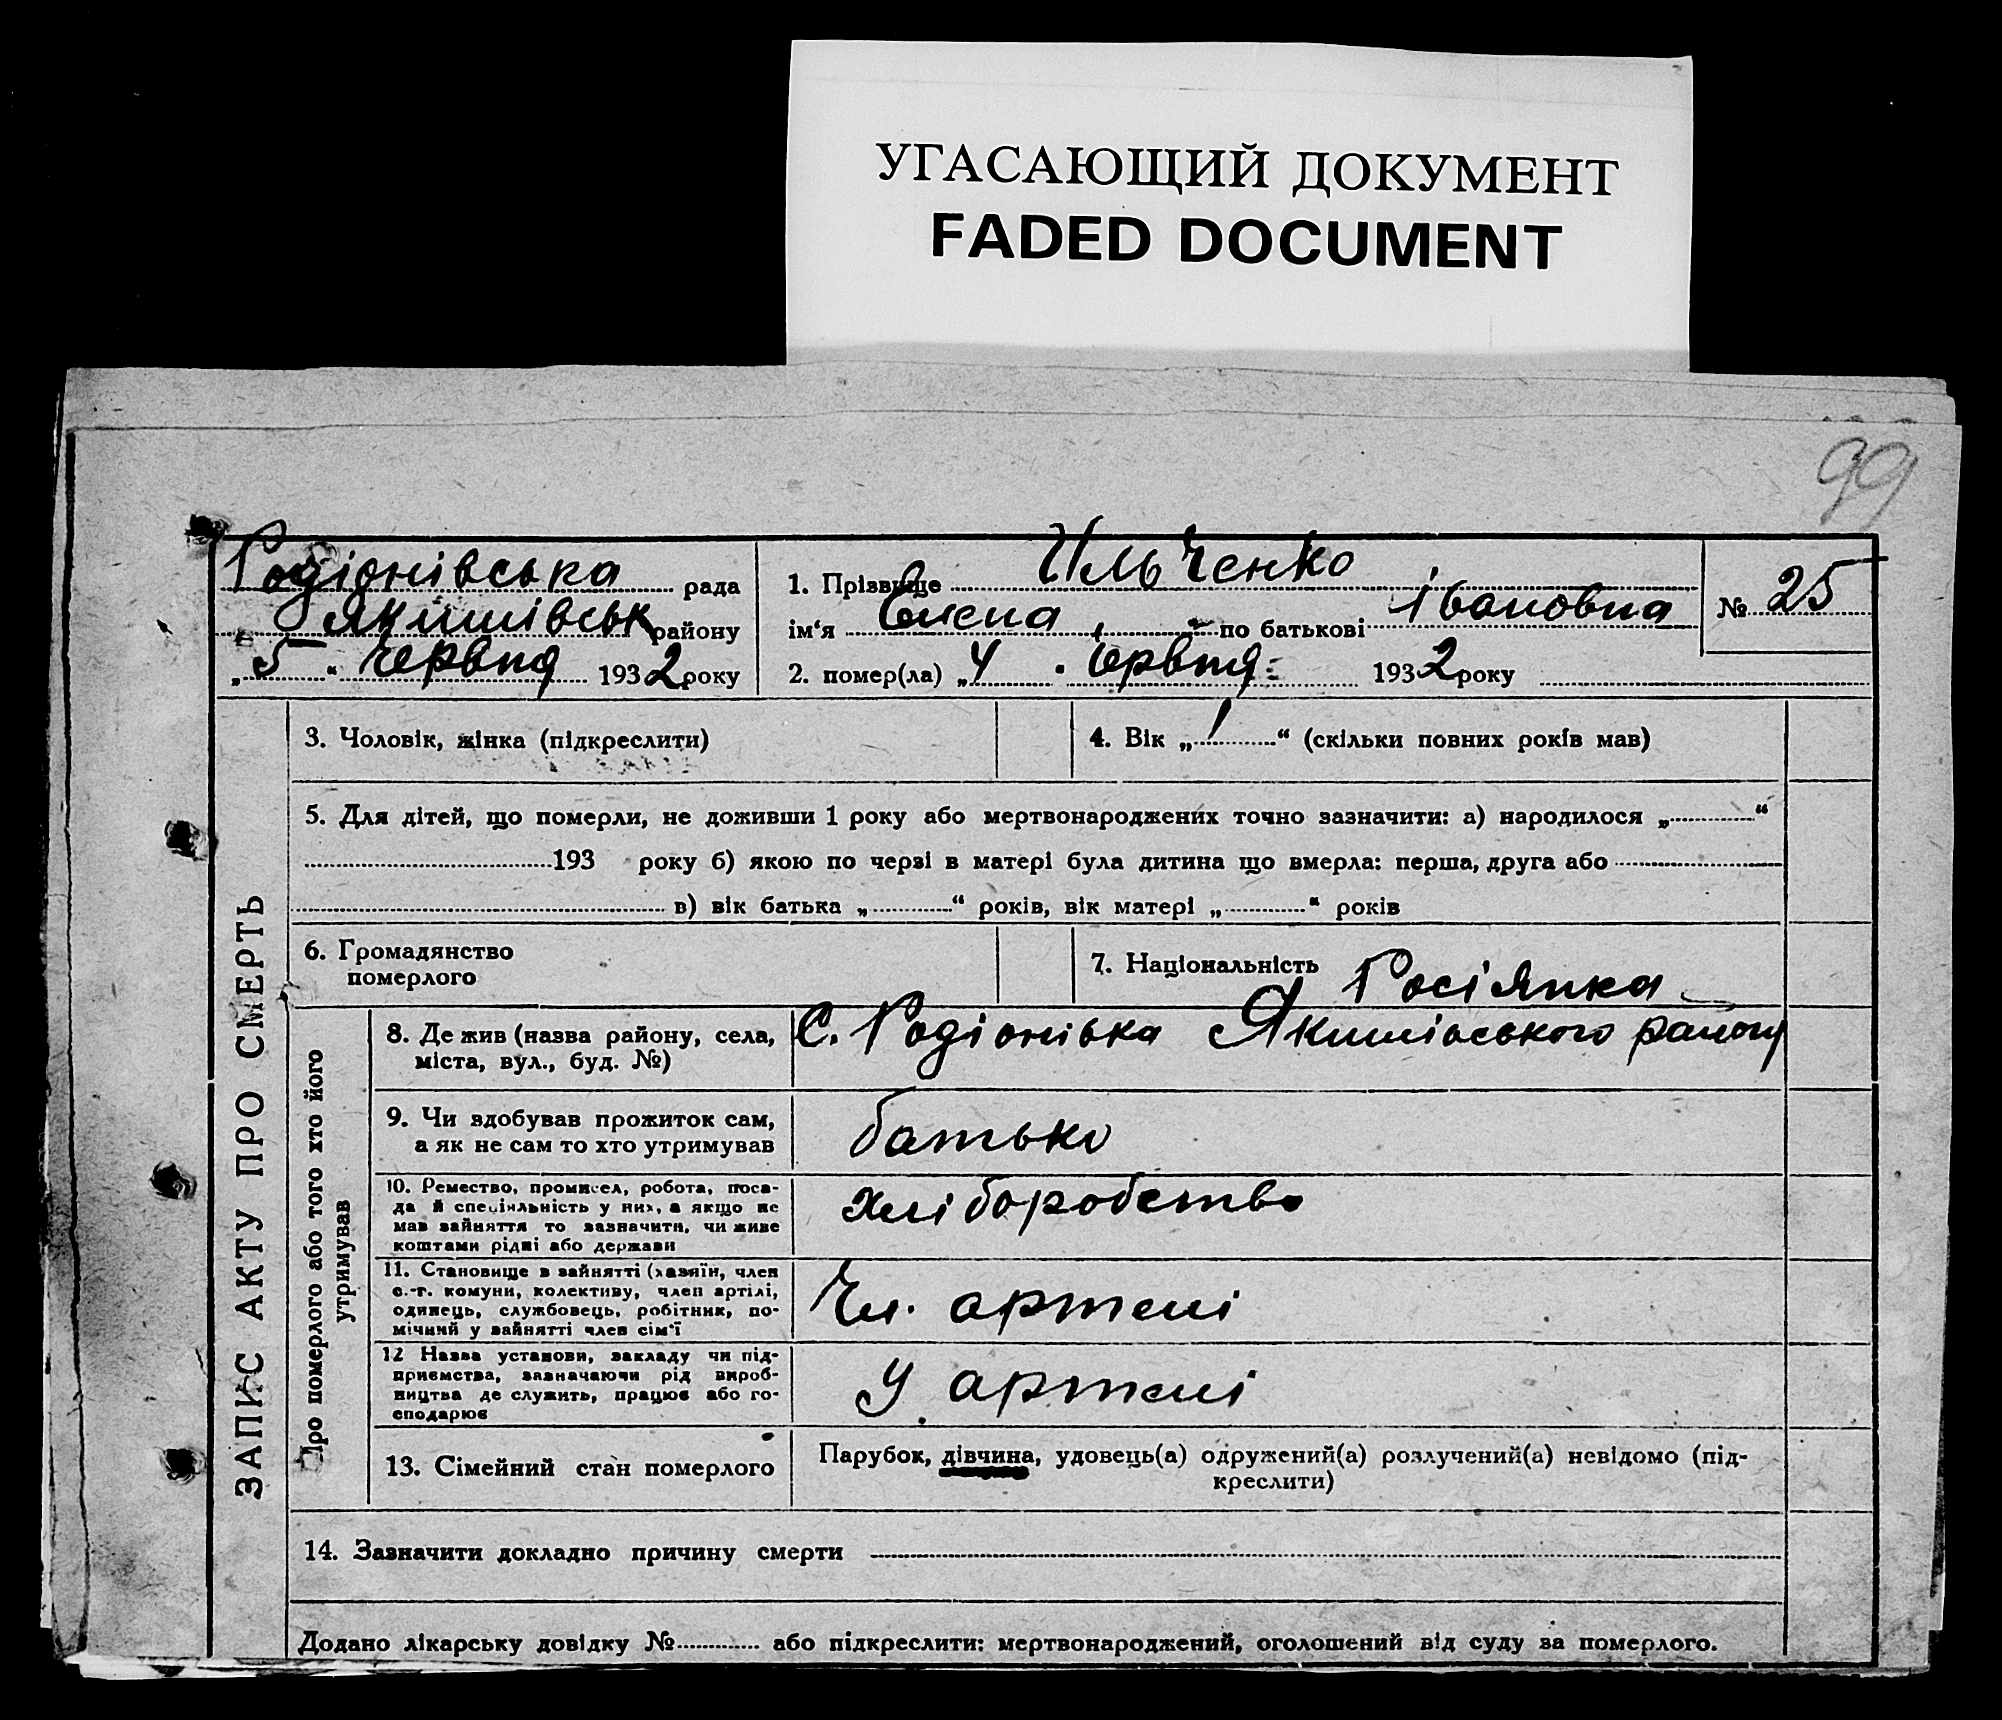 УГАСАЮЩИЙ ДОКУМЕНТ
FADED DOCUMENT
99
Родіонівська рада
Якимівськ району
„5“ червня 1932 року
1. Прізвище Ильченко
ім‘я Елена по батькові Івановна
2. помер(ла) „4 червня 1932 року
№ 25
ЗАПИС АКТУ ПРО СМЕРТЬ
3. Чоловік, жінка (підкреслити)
4. Вік „1“ (скільки повних років мав)
5. Для дітей, що померли, не доживши 1 року або мертвонароджених точно зазначити: а) народилося „ “
193 року б) якою по черзі в матері була дитина що вмерла: перша, друга або
в) вік батька „ “ років, вік матері „ “ років
6. Громадянство
померлого
7. Національність Росіянка
Про померлого або того хто його
утримував
8. Де жив (назва району, села,
міста, вул., буд. №)
С. Родіонівка Якимівського району
9. Чи здобував прожиток сам,
а як не сам то хто утримував
батько
10. Ремество, промисел, робота, поса-
да й спеціяльність у них, а якщо не
мав зайняття то зазначити, чи живе
коштами рідні або держави
хліборобство
11. Становище в зайнятті (хазяїн, член
с.-г. комуни, колективу, член артілі,
одинець, службовець, робітник, по-
мічний у зайнятті член сім‘ї
Чл. артелі
12 Назва установи, закладу чи під-
приємства, зазначаючи рід вироб-
ництва де служить, працює або го-
сподарює
У артелі
13. Сімейний стан померлого
Парубок, дівчина, удовець(а) одружений(а) розлучений(а) невідомо (під-
креслити)
14. Зазначити докладно причину смерти
Додано лікарську довідку № або підкреслити: мертвонароджений, оголошений від суду за померлого.